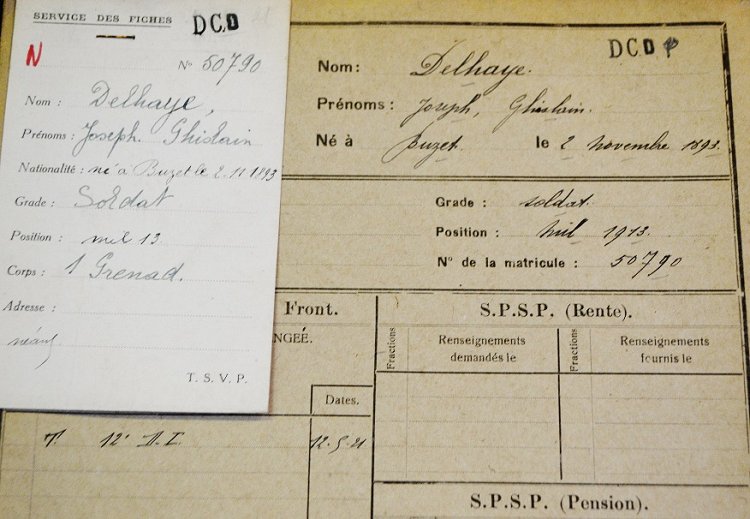 SERVICE DES FICHES
DCD
N
N° 50790
Nom : Delhaye,
Prénoms : Joseph Ghislain
Nationalité : né à Buzet le 2.11.1893
Grade : Soldat
Position : mil 13
Corps : 1 Grenad.
Adresse :
néant
T. S. V. P.
DCD
Nom : Delhaye.
Prénoms : Joseph, Ghislain.
Né à Buzet le 2 novembre 1893.
Grade : soldat.
Position : mil 1913.
N° de la matricule : 50790
Front.
NGÉE.
Dates.
T. 12e D.I. 12-5-21
S.P.S.P. (Rente).
Fractions
Renseignements
demandés le
Fractions
Renseignements
fournis le
S.P.S.P. (Pension).